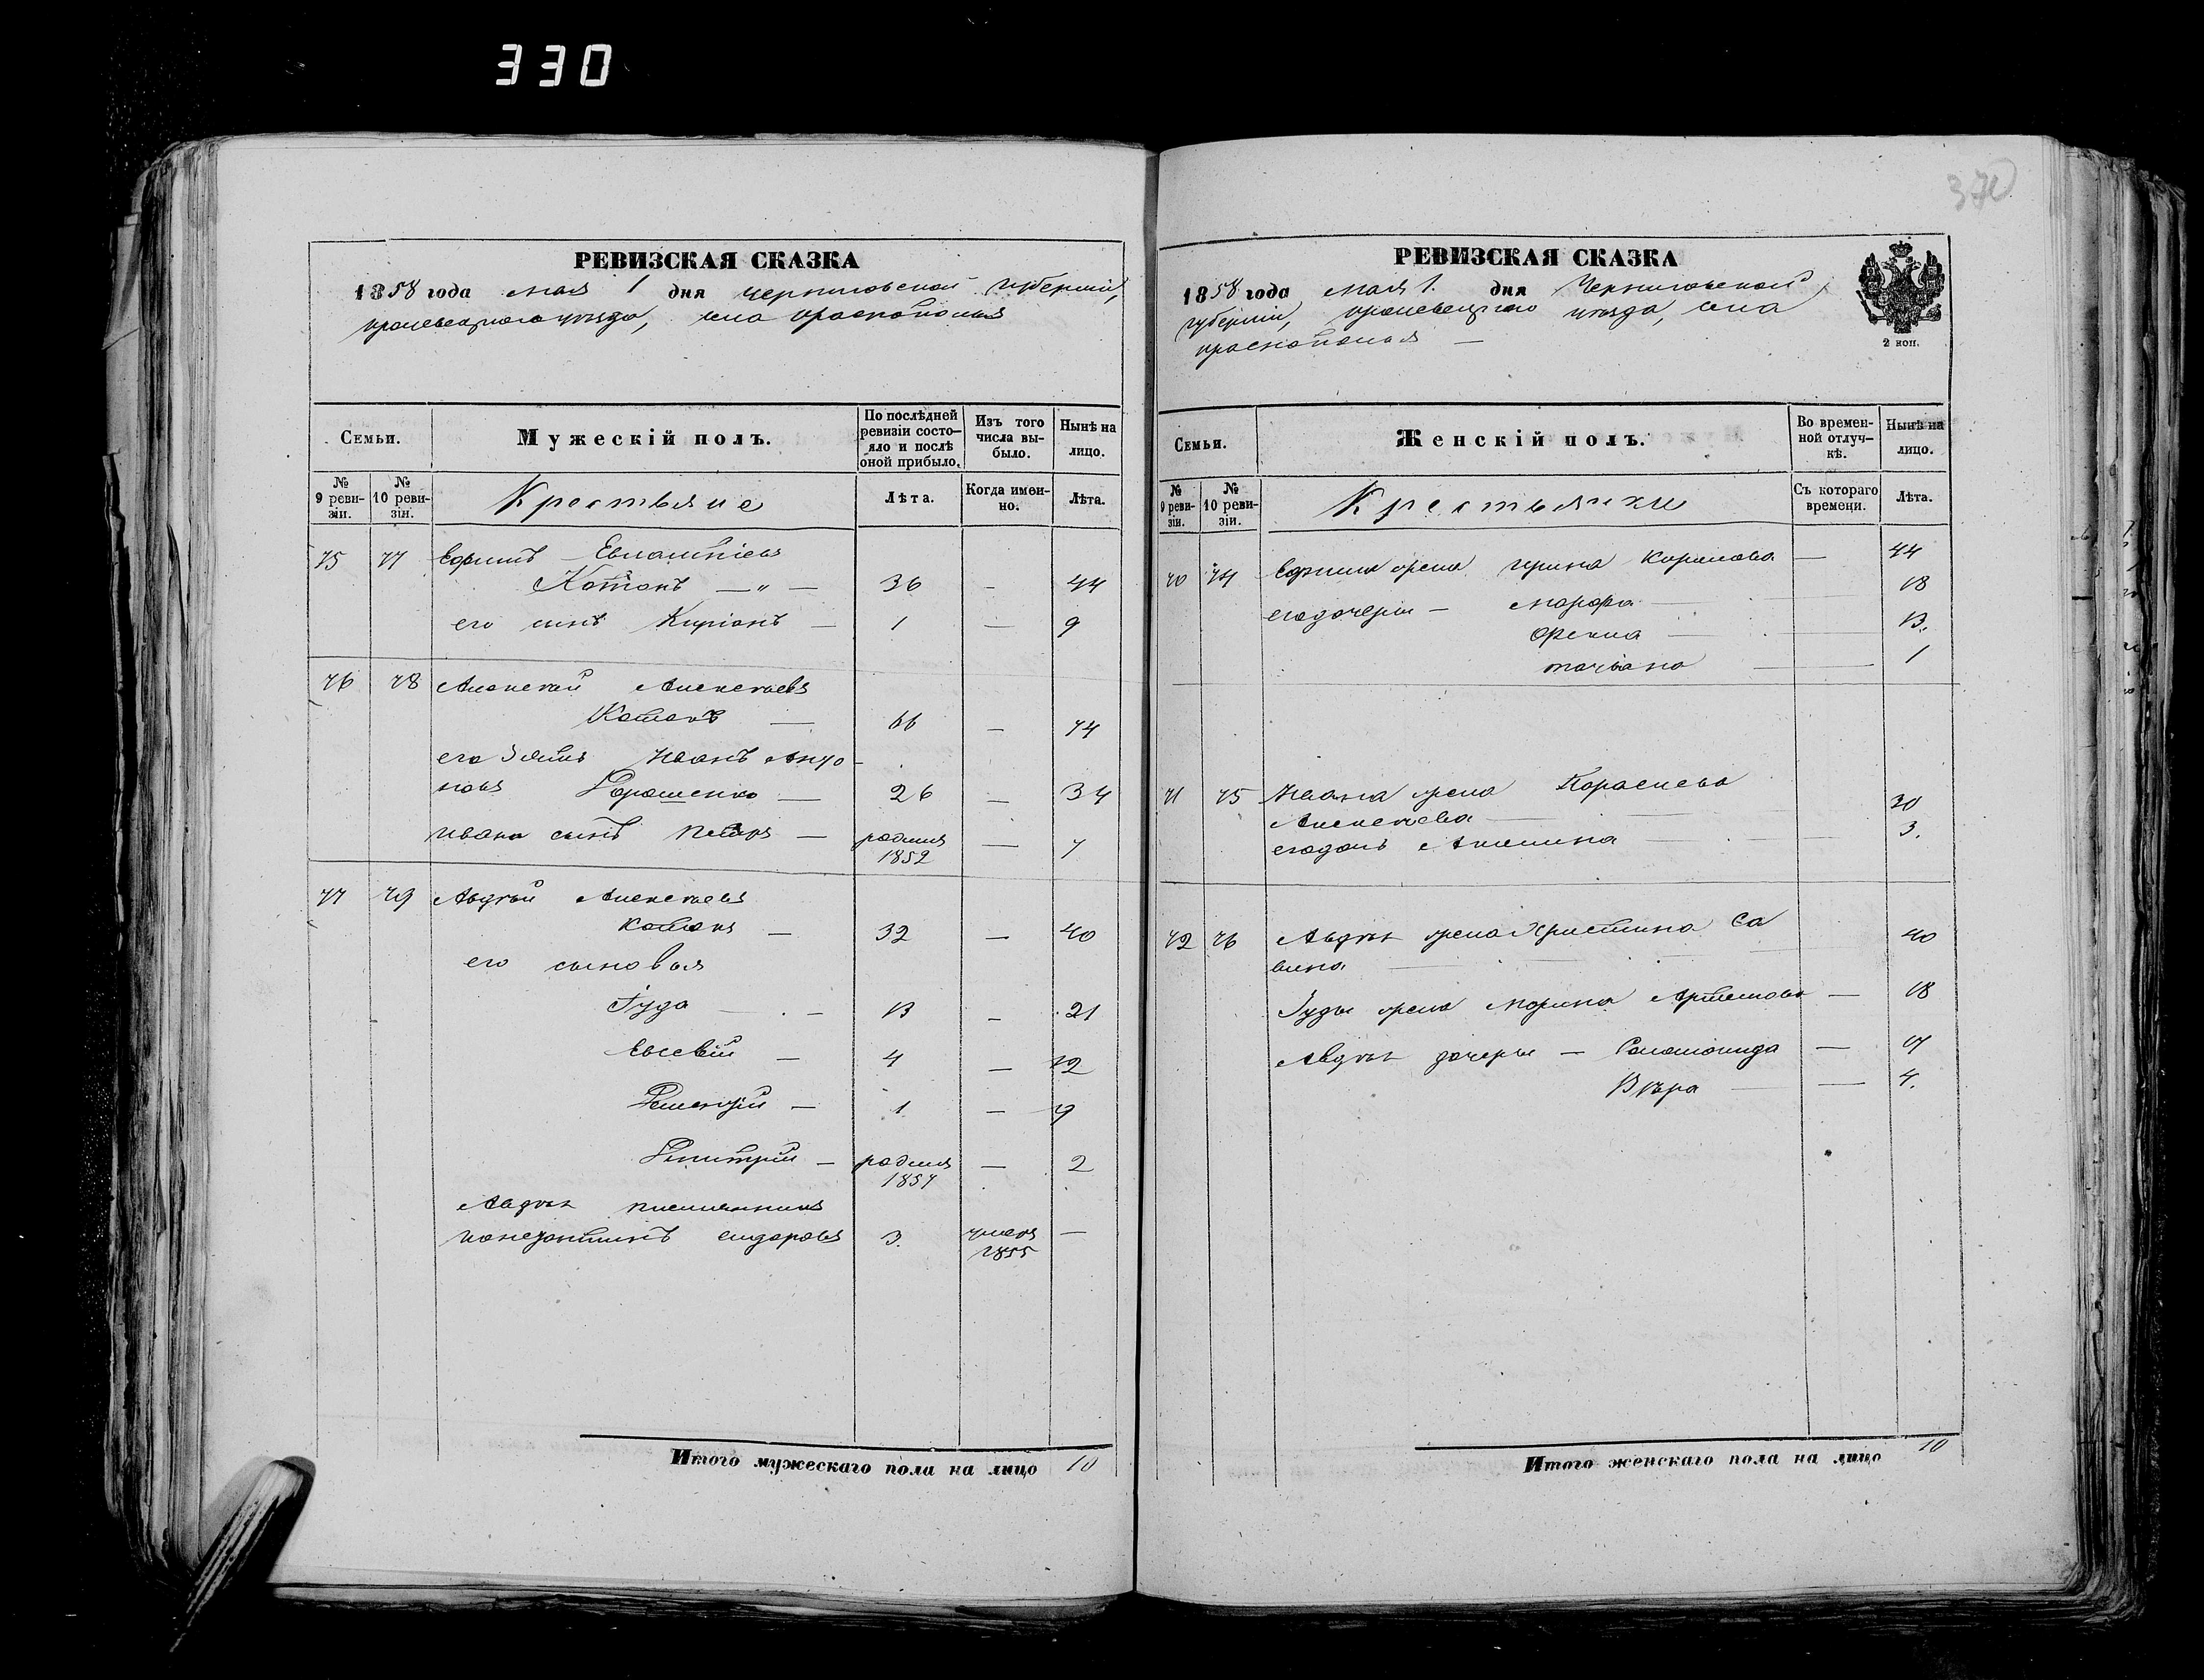 330
370
РЕВИЗСКАЯ СКАЗКА
1858 года мая 1 дня Черниговской губерніи,
кролевецкаго уѣзда, села краснополья
Семьи.
Мужескій полъ.
По послѣдней ревизіи состо-
яло и послѣ оной прибыло.
Изъ того числа вы-
было.
Нынѣ на лицо.
№ 9 реви-
зіи.
№ 10 реви-
зіи.
Крестьяне
Лѣта.
Когда имен-
но.
Лѣта.
75 77 Ефимъ Евлампіевъ
Котокъ — „ — 36 — 44
его сынъ Киріакъ — 1 — 9
76 78 Алексѣй Алексѣевъ
Котокъ — 66 — 74
его Зять Иванъ Анто-
новъ Дорошенко — 26 — 34
Ивана сынъ Петръ — родился 1852 — 7
77 79 Авдѣй Алексѣевъ
Котокъ — 32 — 40
его сыновья
Іуда — 13 — 21
Евсевій — 4 — 12
— 1 — 9
Дмитрій — родился 1857 — 2
Авдѣя племянникъ
Сидоровъ 3. умеръ 1855 —
Итого мужескаго пола на лицо 10
РЕВИЗСКАЯ СКАЗКА
1858 года мая 1. дня Черниговской
губерніи, кролевецкаго уѣзда, села
краснополья —
2 коп.
Семьи.
Женскій полъ.
Во времен-
ной отлуч-
кѣ.
Нынѣ на лицо.
№ 9 реви-
зіи.
№ 10 реви-
зіи.
Крестьянки
Съ котораго времени.
Лѣта.
70 74 Ефима жена Ирина Корнилова — 44
его дочери — Марфа — 18
— 13.
татіана — 1
71 75 Ивана жена
Алексѣева — 30
его дочь Акилина — 3.
72 76 Авдѣя жена Христина Са
вина — 40
Іуды жена Марина Артемова — 18
Авдѣя дочери — Соломонида — 17
Вѣра — 4.
Итого женскаго пола на лицо 10